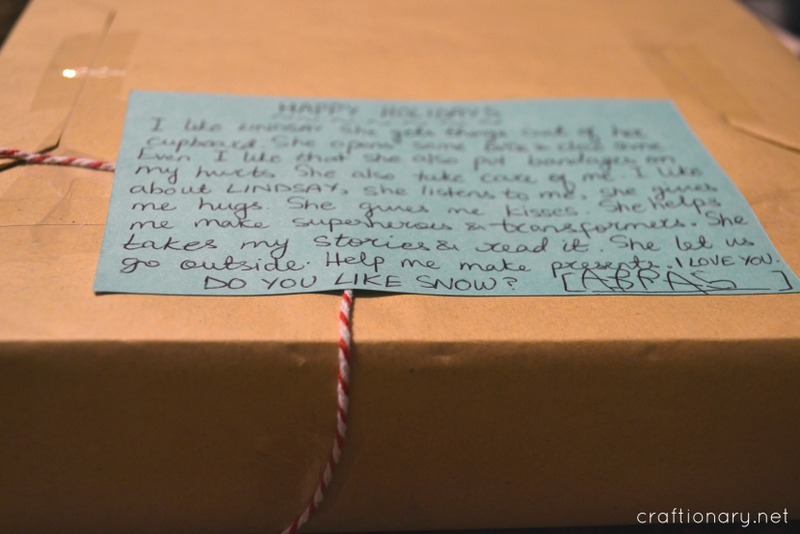 HAPPY HOLIDAYS
I like LINDSAY. She gets things out of her
cupboard. She opens some & close some
Even I like that she also put bandages on
my hurts. She also take care of me. I like
about LINDSAY, she listens to me, she gives
me hugs. She gives me kisses. She helps
me make superheroes & transformers. She
takes my stories & read it. She let us
go outside. Help me make presents. I LOVE YOU.
DO YOU LIKE SNOW? [ABBAS]
craftionary.net